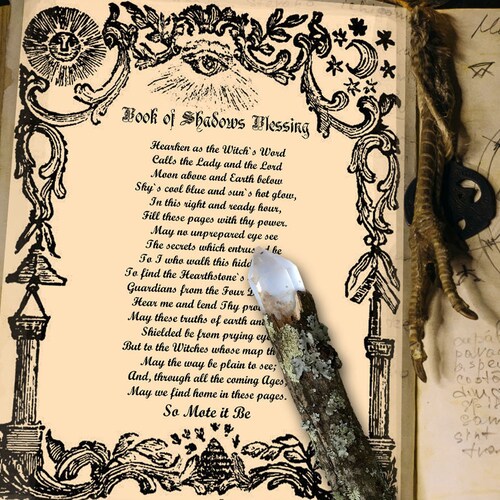 Book of Shadows Blessing
Hearken as the Witch`s Word
Calls the Lady and the Lord
Moon above and Earth below
Sky`s cool blue and sun`s hot glow,
In this right and ready hour,
Fill these pages with thy power.
May no unprepared eye see
The secrets which entrusted be
To I who walk this
To find the Hearthstone`s
Guardians from the Four
Hear me and lend Thy
May these truths of earth and
Shielded be from prying
But to the Witches whose map
May the way be plain to see;
And, through all the coming Ages,
May we find home in these pages.
So Mote it Be